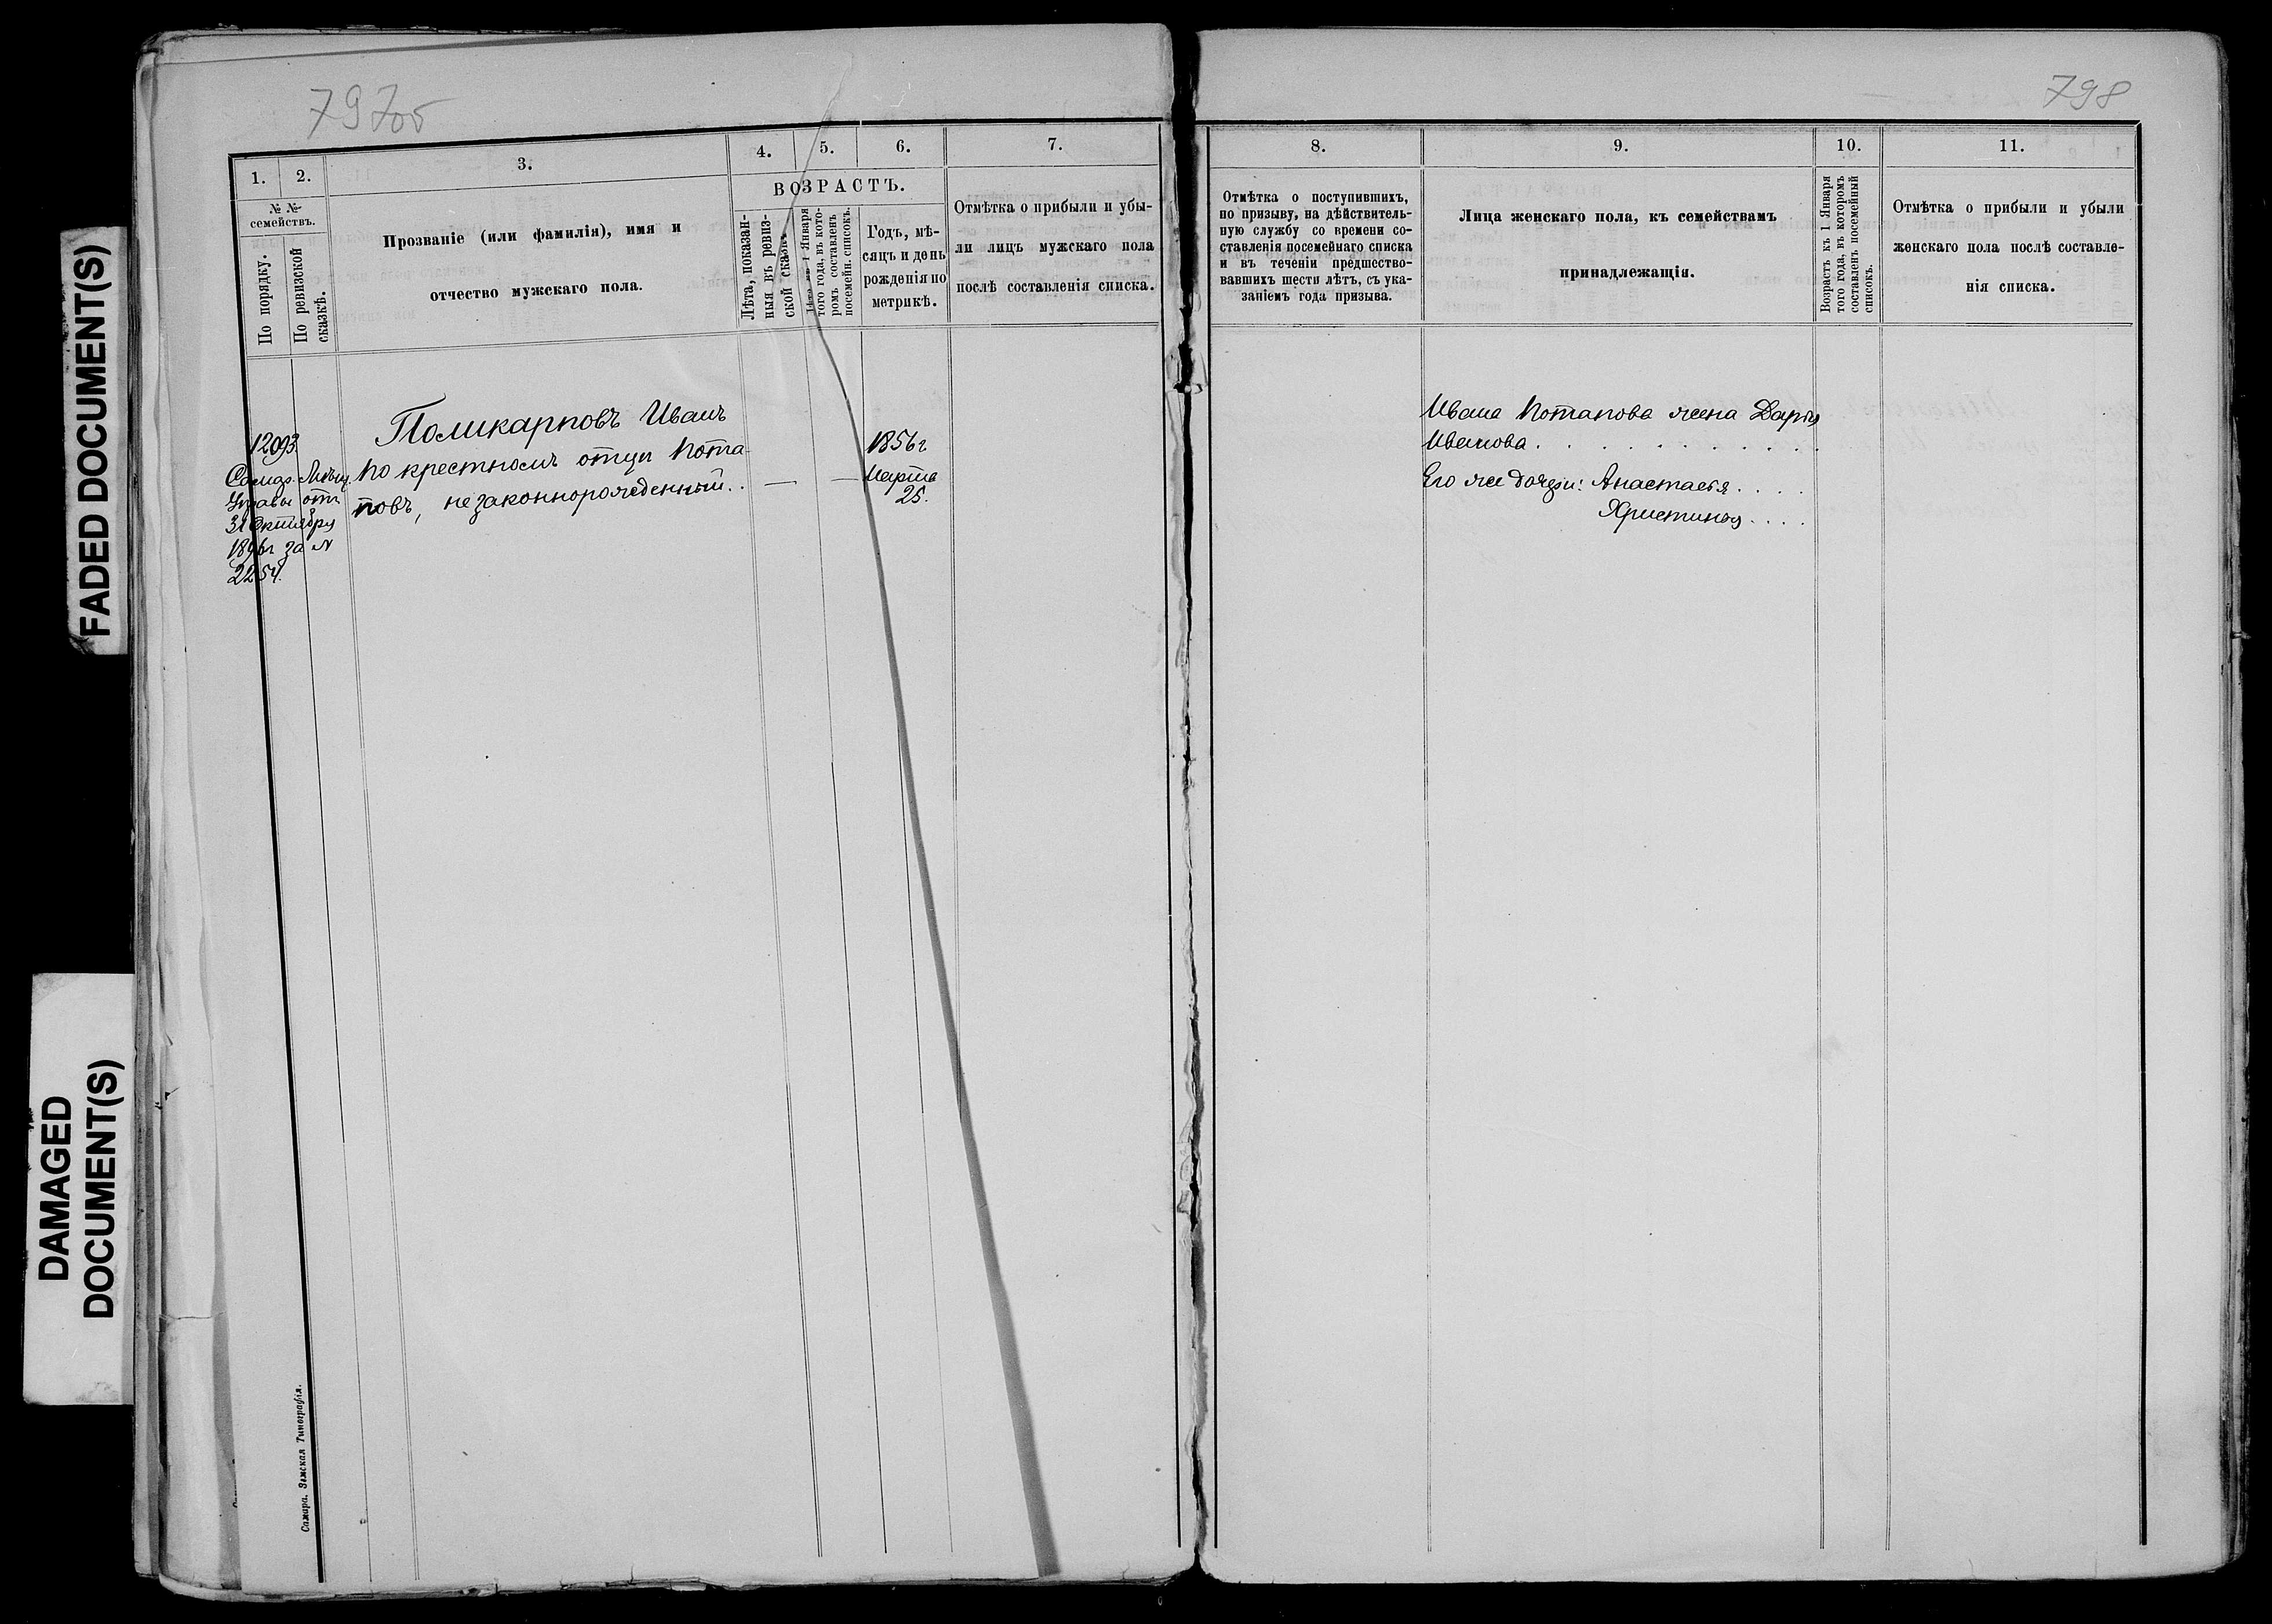 797об
798
1. 2. 3. 4. 5. 6. 7.
№ №
семействъ.
По порядку.
По ревизской
сказкѣ.
Прозваніе (или фамилія), имя и
отчество мужскаго пола.
ВОЗРАСТЪ.
Лѣта, показан-
ныя въ ревиз-
ской сказкѣ.
Лѣта къ 1 Января
того года, въ кото-
ромъ составленъ
посемейн. списокъ.
Годъ, мѣ-
сяцъ и день
рожденія по
метрикѣ.
Отмѣтка о прибыли и убы-
ли лицъ мужскаго пола
послѣ составленія списка.
12093.
Самар. Мѣщ.
Управы отъ
31 Октября
1896г за №
2254.
Поликарповъ Иванъ
по крестномъ отцѣ Пота-
повъ, незаконнорожденный . . — —
1856г
Марта
25.
Самара. Земская Типографія.
8. 9. 10. 11.
Отмѣтка о поступившихъ,
по призыву, на дѣйствитель-
ную службу со времени со-
ставленія посемейнаго списка
и въ теченіи предшество-
вавшихъ шести лѣтъ, съ ука-
заніемъ года призыва.
Лица женскаго пола, къ семействамъ
принадлежащія.
Возрастъ къ 1 Января
того года, въ которомъ
составленъ посемейный
списокъ.
Отмѣтка о прибыли и убыли
женскаго пола послѣ составле-
нія списка.
Ивана Потапова жена Дарья
Иванова . . . . . . . . . .
Его же дочери: Анастасія . . . .
Христинья . . . .
FADED DOCUMENT(S)
DAMAGED
DOCUMENT(S)